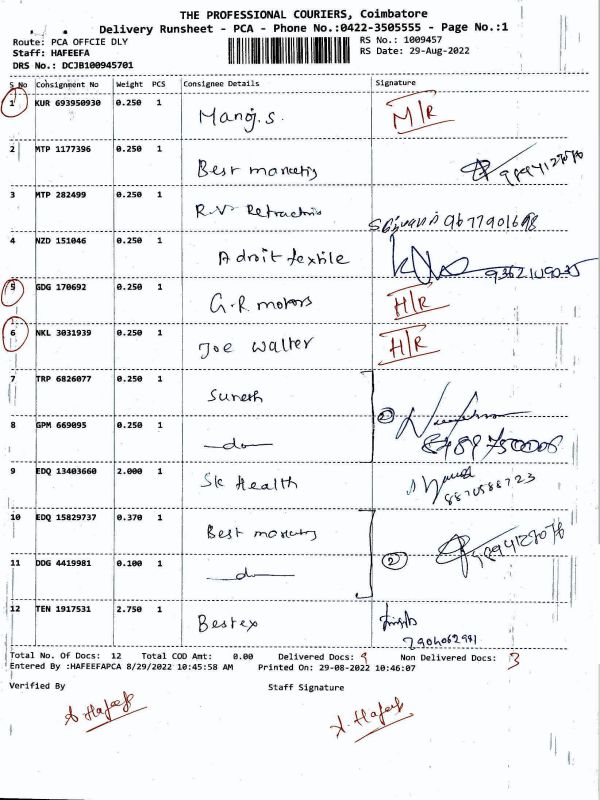 THE PROFESSIONAL COURIERS, Coimbatore
Delivery Runsheet - PCA - Phone No.:0422-3505555 - Page No.:1
Route: PCA OFFCIE DLY
RS No.: 1009457
Staff: HAFEEFA
RS Date: 29-Aug-2022
DRS No.: DCJB100945701
S No Consignment No Weight PCS Consignee Details Signature
1 KUR 693950930 0.250 1 Manoj.S. M/R
2 MTP 1177396 0.250 1 Best marketing 9894127076
3 MTP 282499 0.250 1 R.V. 9677901698
4 NZD 151046 0.250 1 Adroit textile
5 GDG 170692 0.250 1 G.R. motors H/R
6 NKL 3031939 0.250 1 Joe Walter H/R
7 TRP 6826077 0.250 1 Suresh
8 GPM 669095 0.250 1 —do— 2
9 EDQ 13403660 2.000 1 SK Health 8870588723
10 EDQ 15829737 0.370 1 Best marketing
11 DDG 4419981 0.100 1 —do— 2 9894127076
12 TEN 1917531 2.750 1 Bestex
Total No. Of Docs: 12 Total COD Amt: 0.00 Delivered Docs: 9 Non Delivered Docs: 3
Entered By :HAFEEFAPCA 8/29/2022 10:45:58 AM Printed On: 29-08-2022 10:46:07
Verified By Staff Signature
A. Hafeefa A. Hafeefa